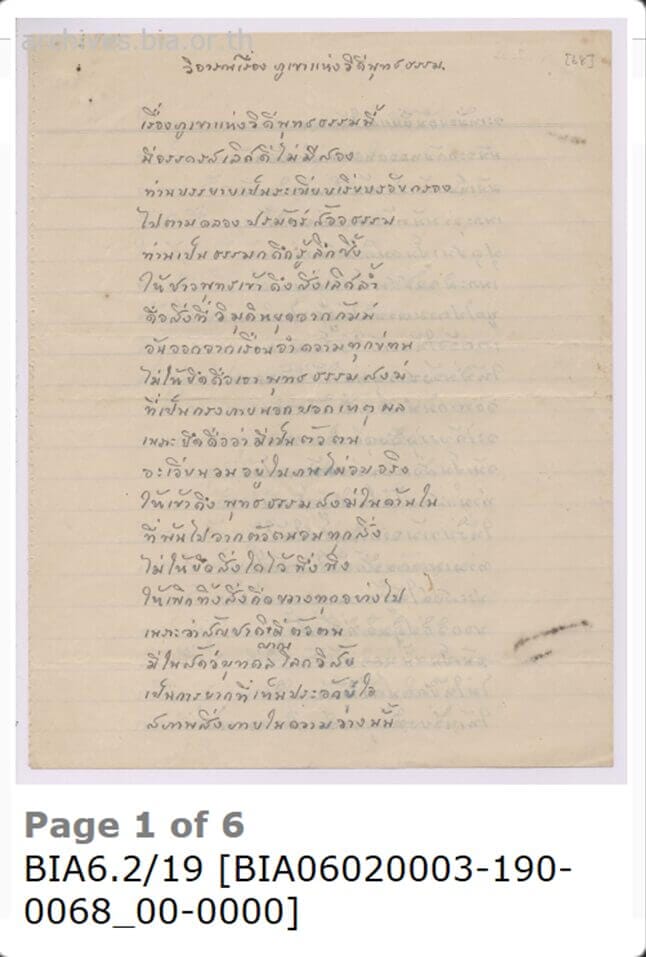 archives.bia.or.th
วิจารณ์เรื่อง ภูเขาแห่งวิถีพุทธธรรม.
[68]
เรื่องภูเขาแห่งวิถีพุทธธรรมนี้
มีอรรถรสเลิศดีไม่มีสอง
ท่านบรรยายเป็นระเบียบเรียบร้อยกรอง
ไปตามคลอง ปรมัตถ์ สัจจธรรม
ท่านเป็นธรรมกถึกรู้ลึกซึ้ง
ให้ชาวพุทธเข้าถึงสิ่งเลิศล้ำ
คือสิ่งที่วิมุติหยุดจากกัมม์
อันออกจากเรือนจำความทุกข์ตน
ไม่ให้ยึดถือเอาพุทธธรรมสงฆ์
ที่เป็นกรงภายนอกบอกเหตุผล
เพราะยึดถือว่ามีเป็นตัวตน
จะเวียนวนอยู่ในภพไม่จบจริง
ให้เข้าถึงพุทธธรรมสงฆ์ในด้านใน
ที่พ้นไปจากตัวตนจนทุกสิ่ง
ไม่ให้ยึดสิ่งใดไว้พึ่งพิง
ให้เพิกทิ้งสิ่งกีดขวางทุกอย่างไป
เพราะว่าสัญชาติที่มีตัวตน
มีในสัตว์บุคคลญาณโลกวิสัย
เป็นการยากที่เห็นประจักษ์ใจ
สภาพสิ่งภายในความว่างนั้น
Page 1 of 6
BIA6.2/19 [BIA06020003-190-
0068_00-0000]